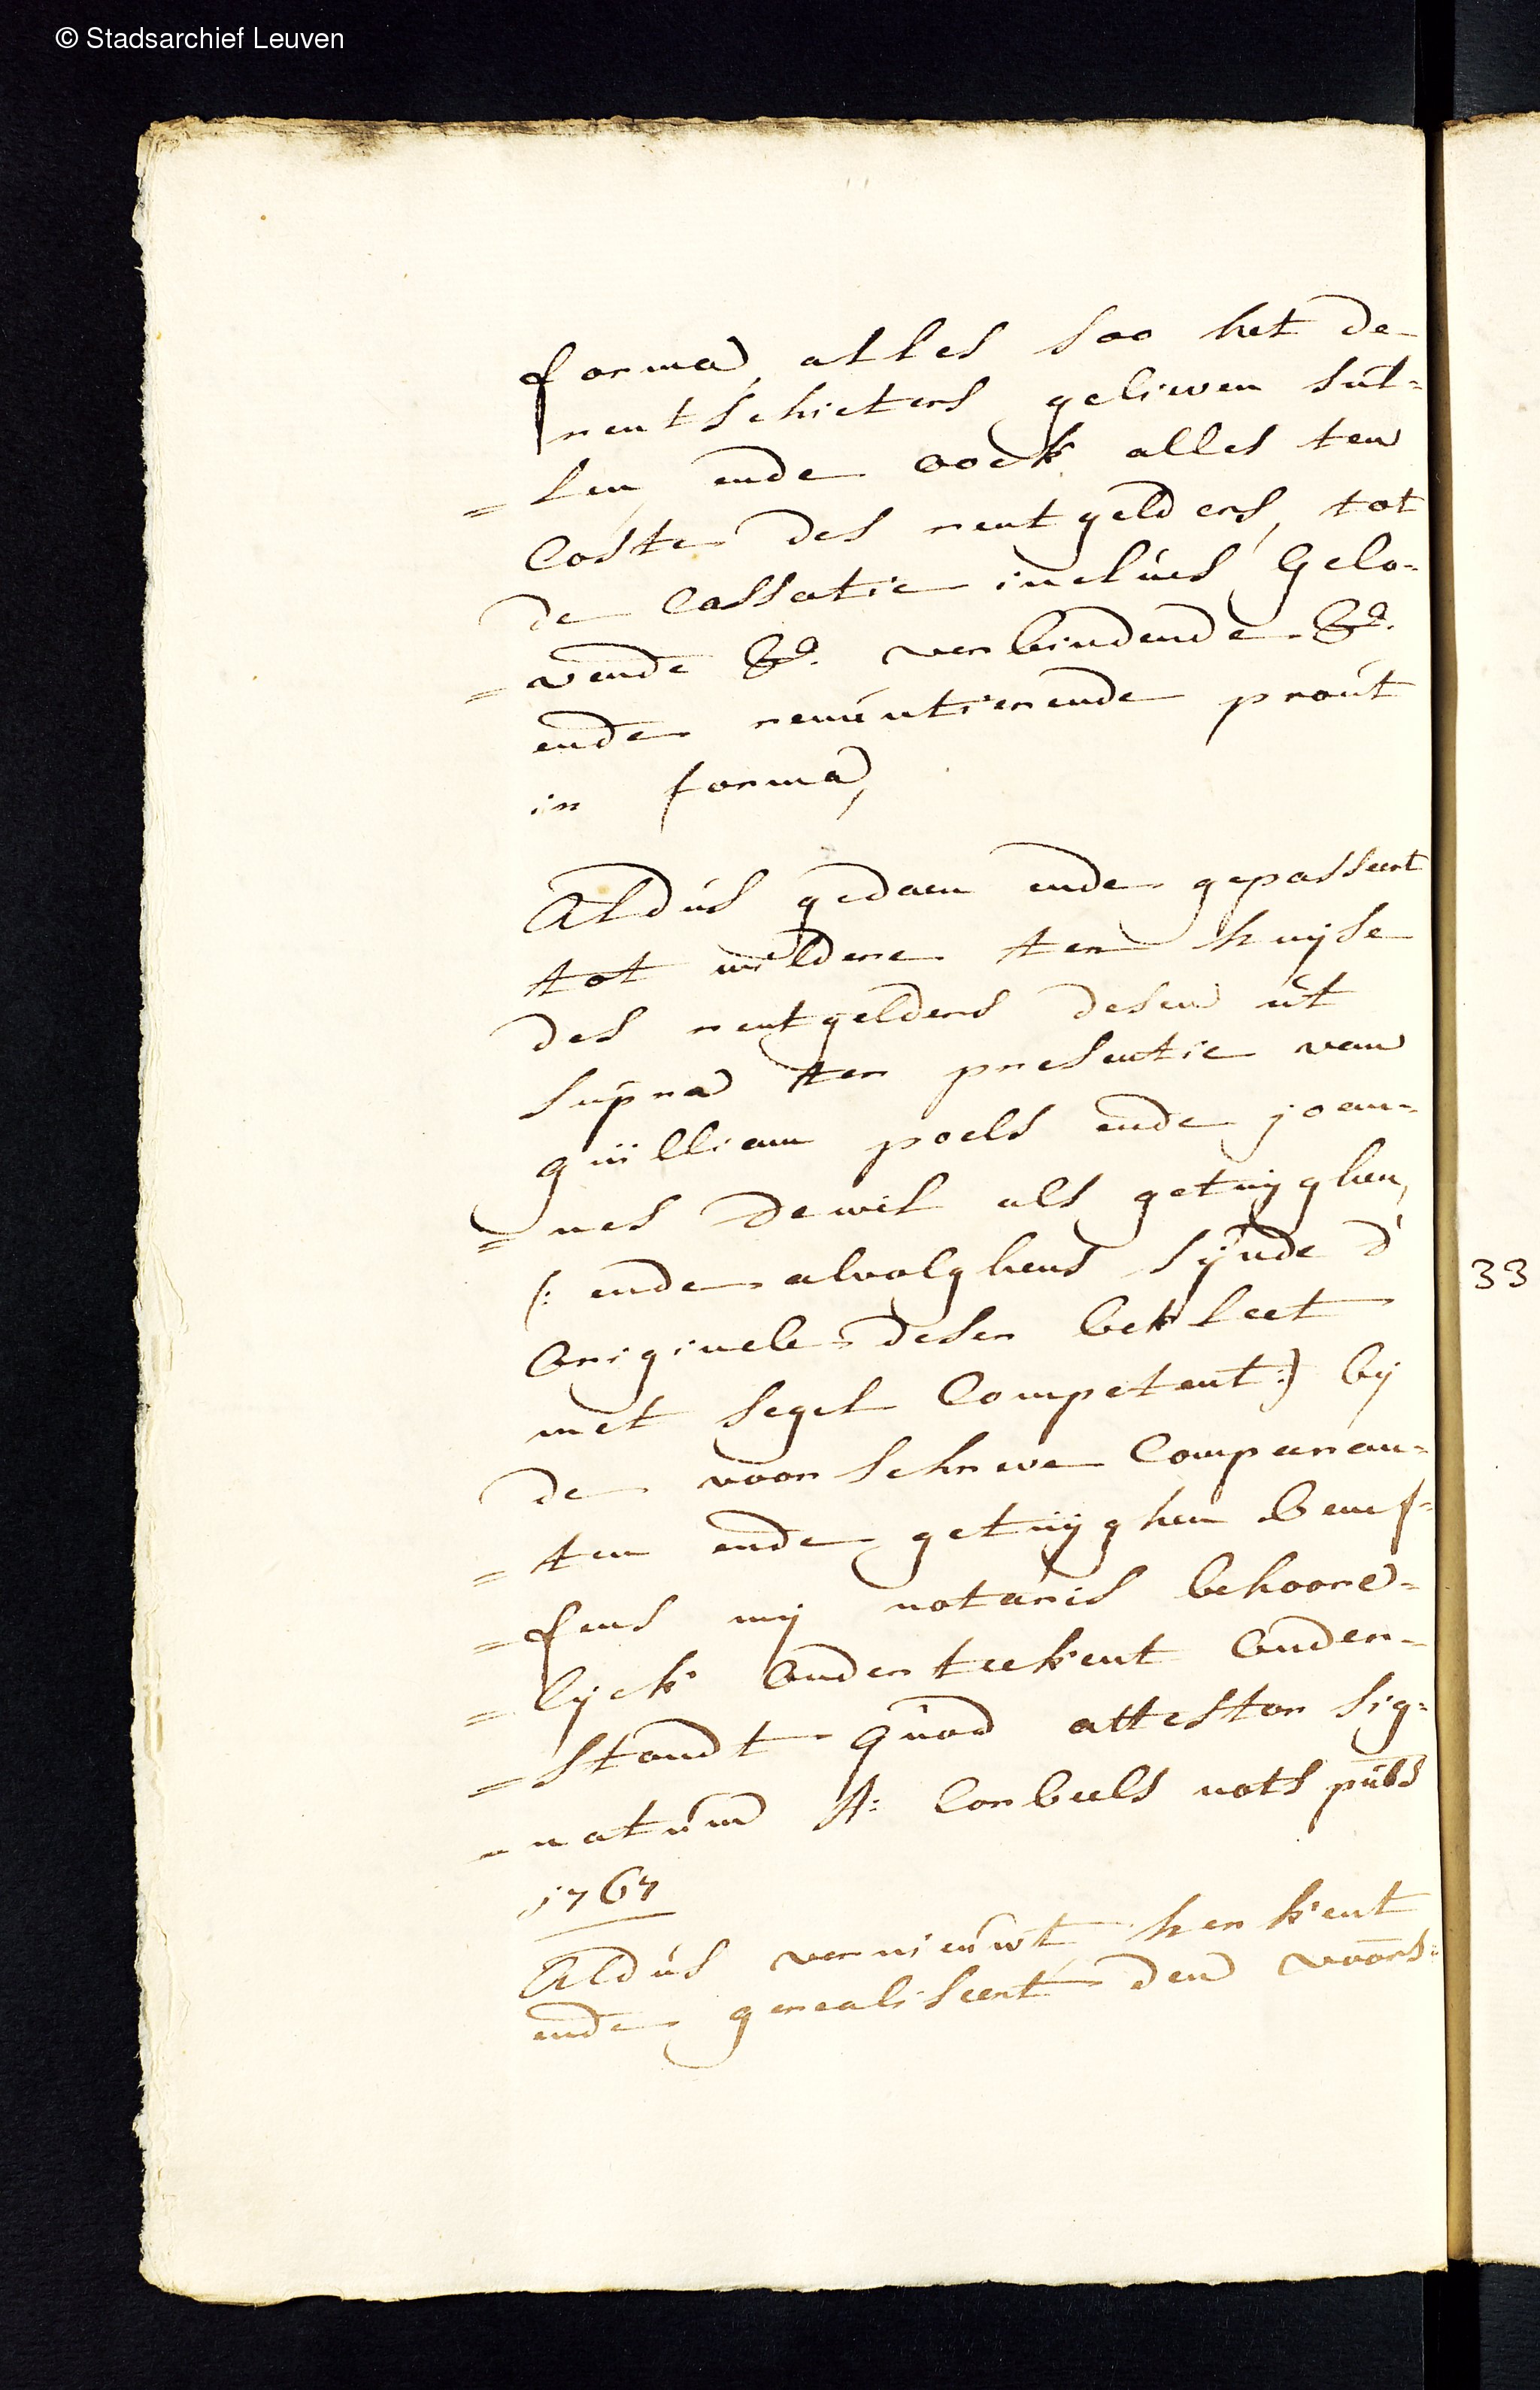 © Stadsarchief Leuven
forma, alles soo het de
rentschieters gelieven sul=
=len, ende oock alles ten
Coste des rentgelders, tot
de Cassatie inclúes, Gelo=
=vende &a. verbindende &a.
ende renúntierende proút
in forma,
Aldús gedaen ende gepasseert
tot meldere ter huijse
des rentgelders desen út
súpra ter presentie van
gúilliam poels ende joan=
=nes dewil als getuijghen,
(: ende alvolghens sijnde d'
origineele deser bekleet
met segel Competent:) bij
de voorschreve Comparan=
=ten ende getuijghen benef=
=fens mij notaris behoore=
=lijck onderteekent onder=
=standt qúod attestor sig=
=natúm A: Corbeels nots púbs
1767
Aldús vernieúwt, herkent
ende gerealiseert den voors:
33